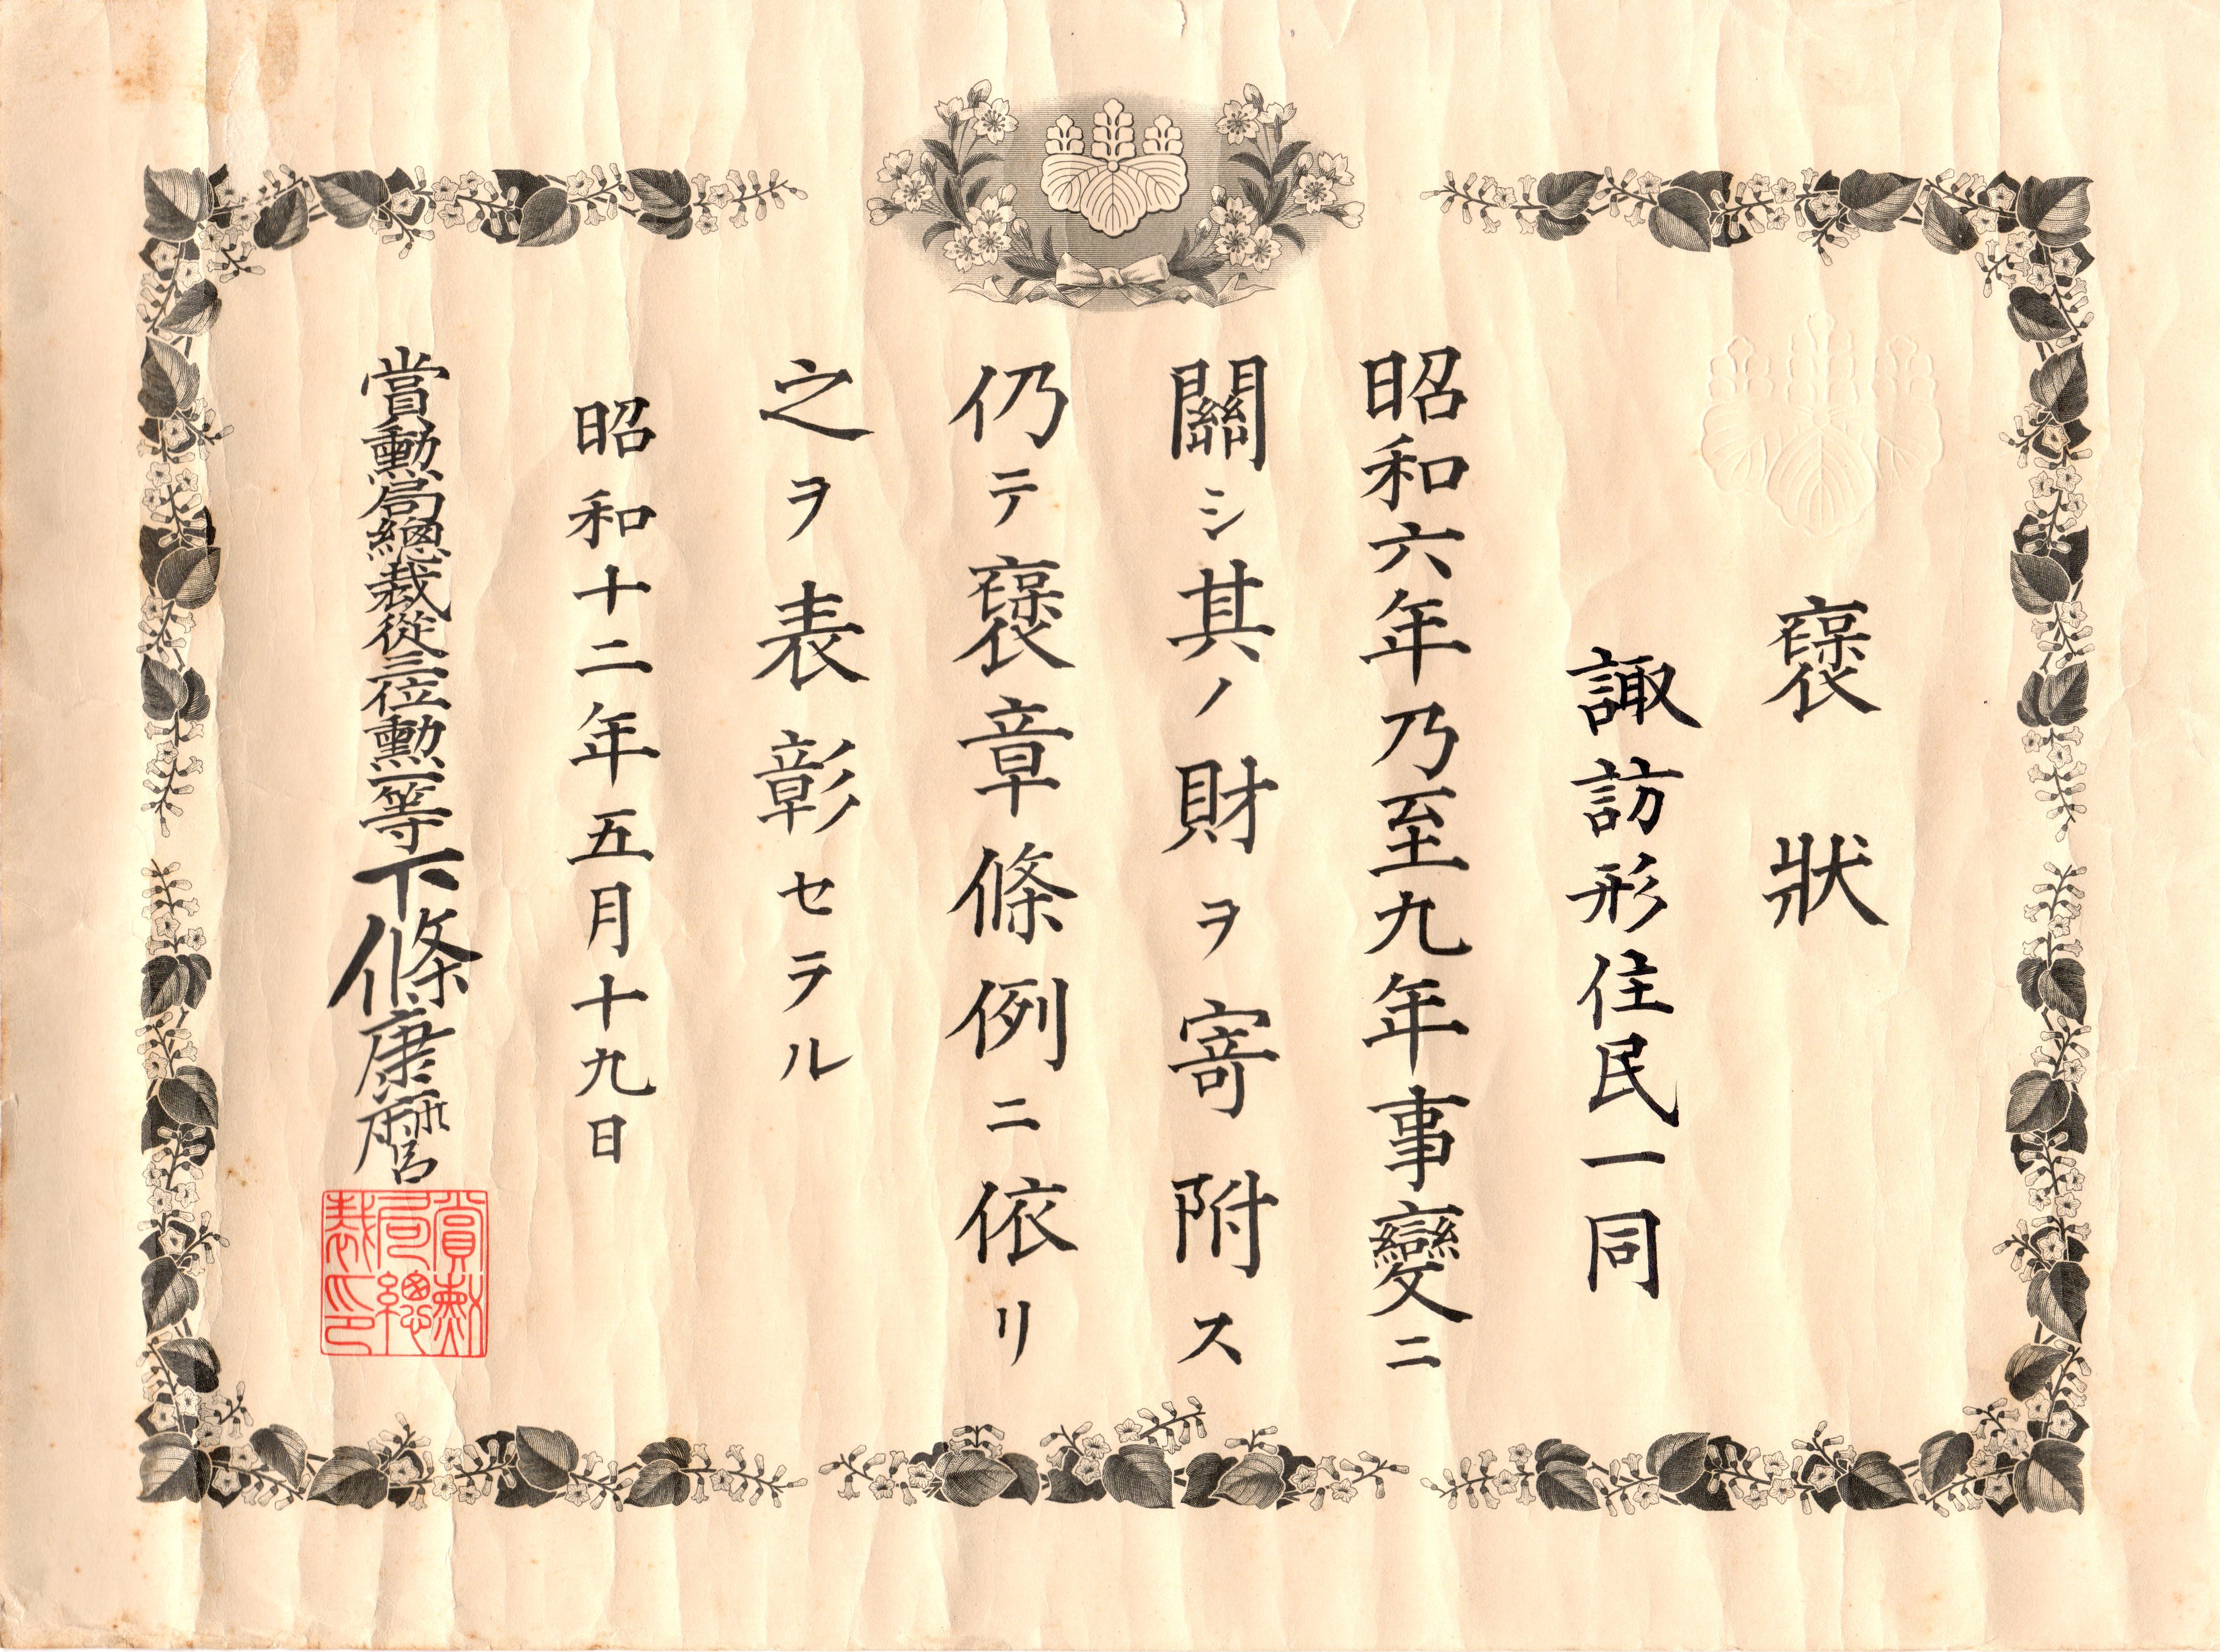 褒狀
諏訪形住民一同
昭和六年乃至九年事變ニ
關シ其ノ財ヲ寄附ス
仍テ褒章條例ニ依リ
之ヲ表彰セラル
昭和十二年五月十九日
賞勳局總裁從三位勳一等下條康麿
賞勳局總裁印